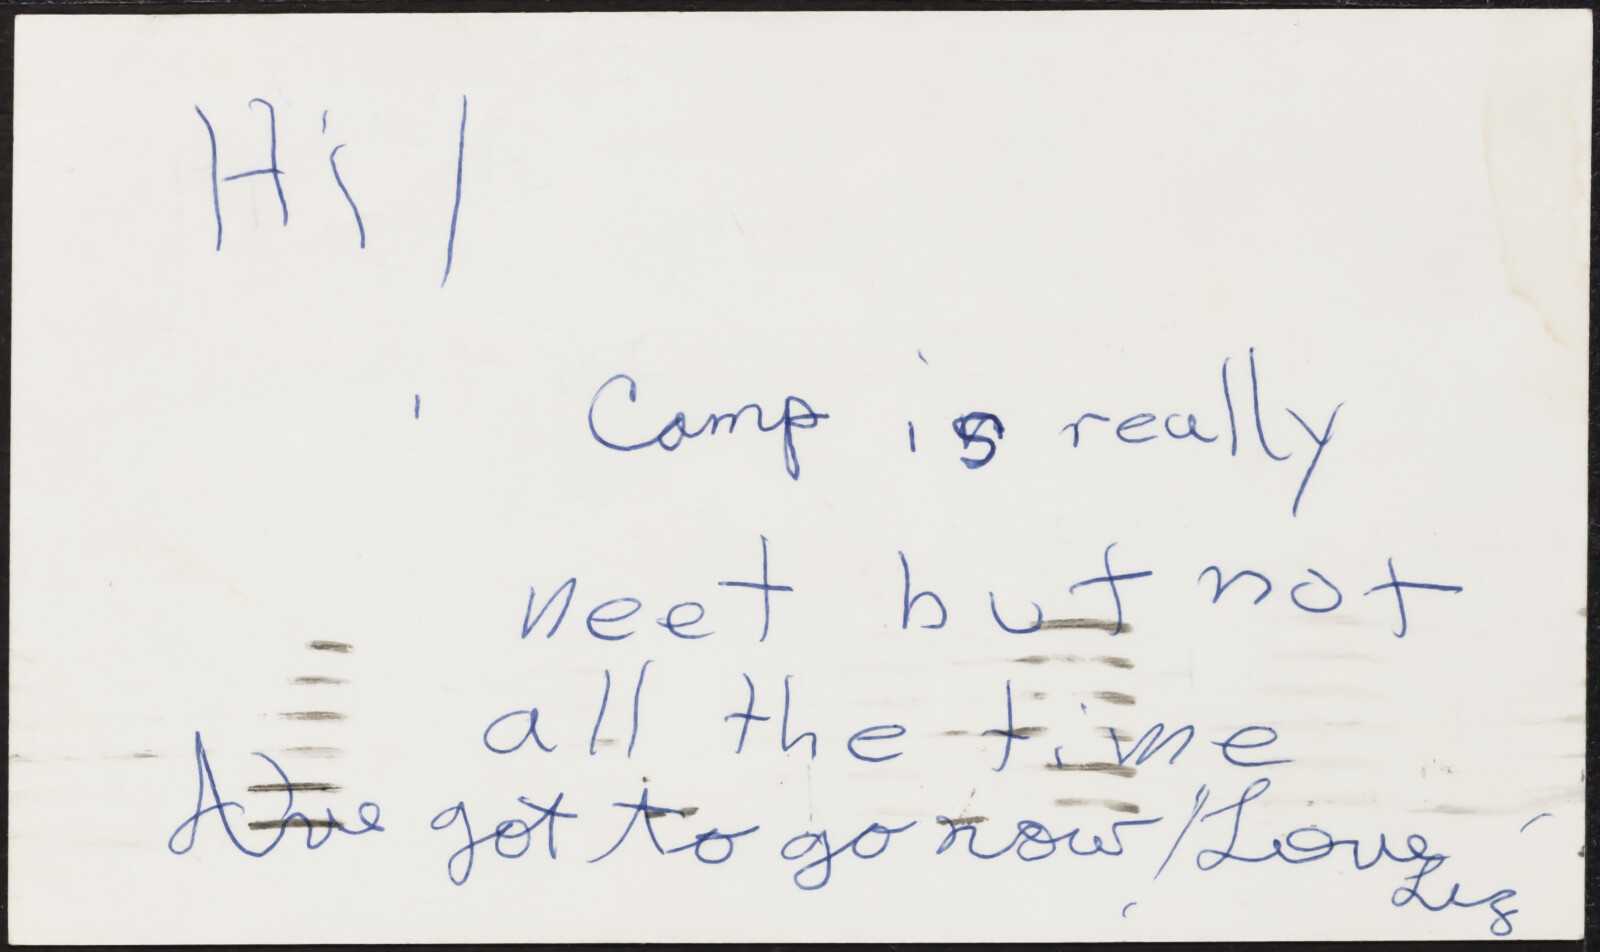 Hi!
Camp is really
neet but not
all the time
Have got to go now! Love,
Liz